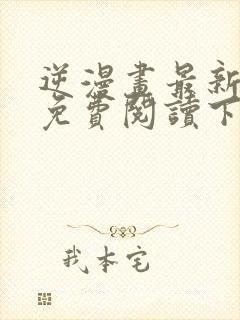 逆漫畫最新
免費閱讀下
我本宅